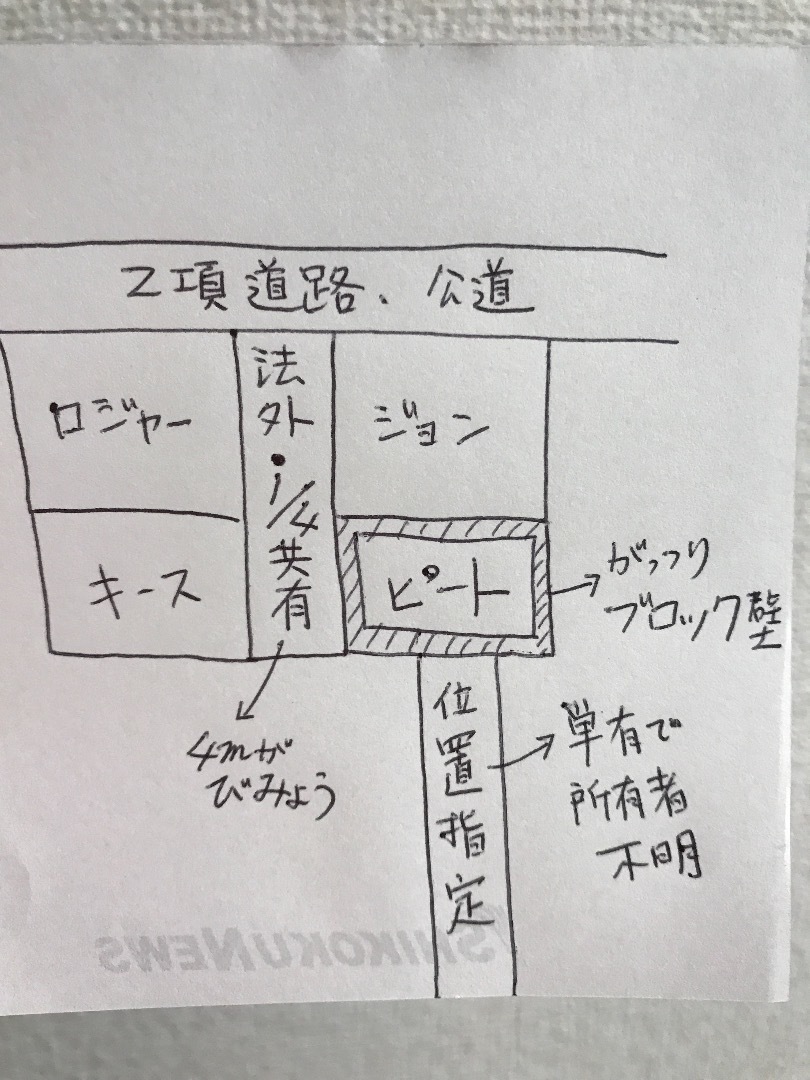 2項道路、公道
ロジャー
法外・1/4共有
ジョン
キース
ピート
がっつり
ブロック壁
4mが
びみょう
位置指定
単有で
所有者
不明
SHIKOKU NEWS